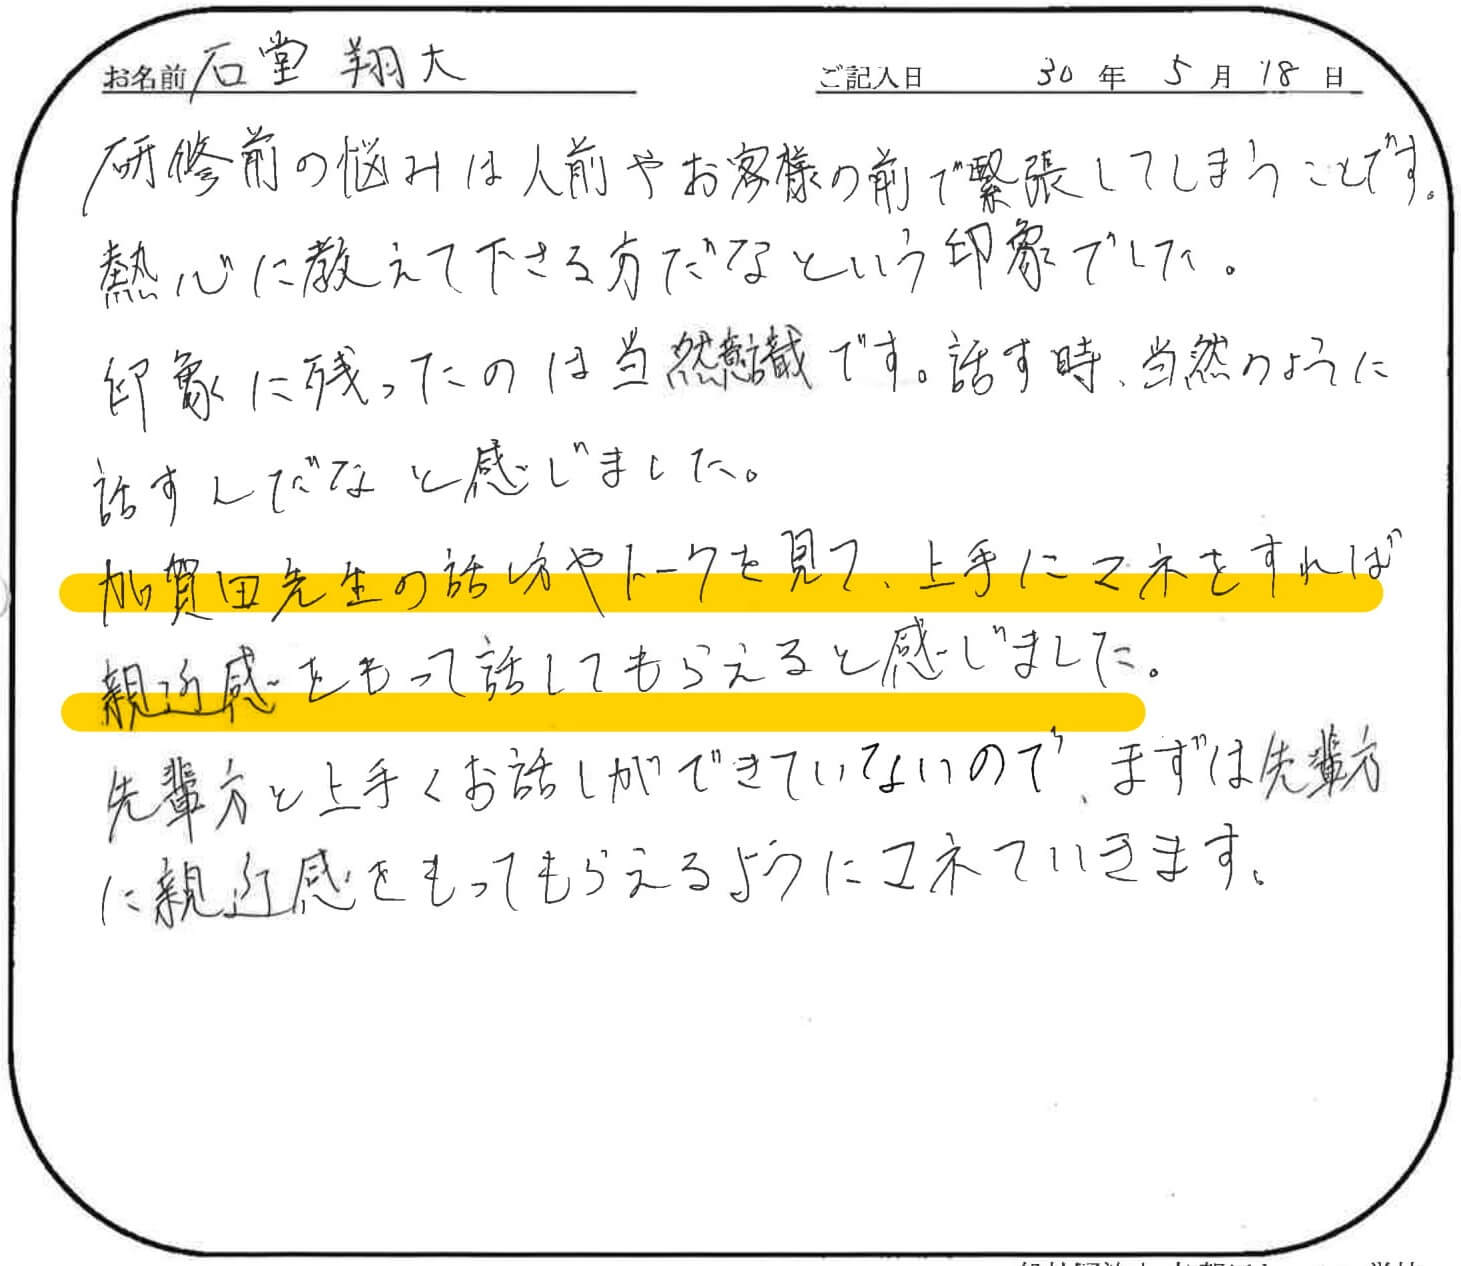 お名前 石堂 翔大 ご記入日 30年 5月 18日
研修前の悩みは人前やお客様の前で緊張してしまうことです。
熱心に教えて下さる方だなという印象でした。
印象に残ったのは当然意識です。話す時、当然のように
話すんだなと感じました。
加賀田先生の話し方やトークを見て、上手にマネをすれば
親近感をもって話してもらえると感じました。
先輩方と上手くお話しができていないので、まずは先輩方
に親近感をもってもらえるようにマネていきます。